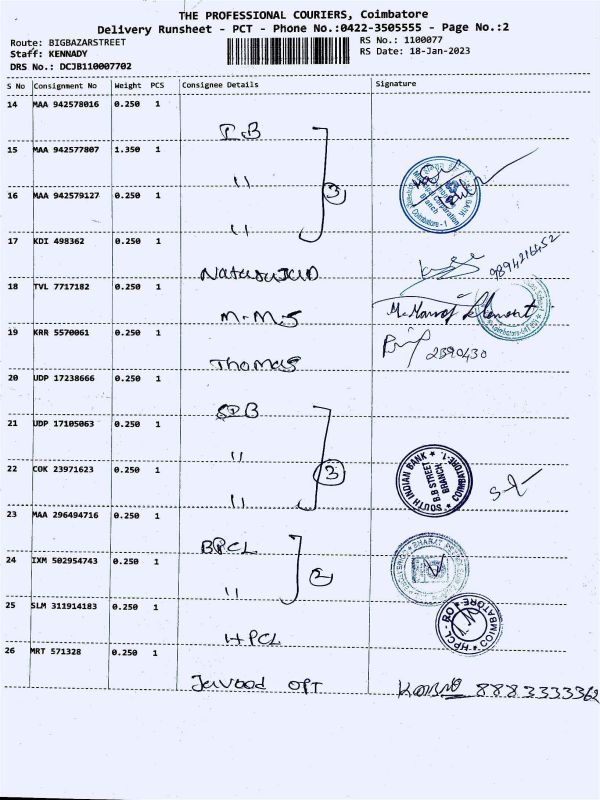 THE PROFESSIONAL COURIERS, Coimbatore
Delivery Runsheet - PCT - Phone No.:0422-3505555 - Page No.:2
Route: BIGBAZARSTREET RS No.: 1100077
Staff: KENNADY RS Date: 18-Jan-2023
DRS No.: DCJB110007702
S No Consignment No Weight PCS Consignee Details Signature
14 MAA 942578016 0.250 1
I.B
15 MAA 942577807 1.350 1
" 3
16 MAA 942579127 0.250 1
"
17 KDI 498362 0.250 1
9894216452
18 TVL 7717182 0.250 1
M.M.S
19 KRR 5570061 0.250 1
Thomas 2390430
20 UDP 17238666 0.250 1
SIB
21 UDP 17105063 0.250 1
" 3
SOUTH INDIAN BANK * COIMBATORE-1. *
B.B STREET
BRANCH
22 COK 23971623 0.250 1
"
23 MAA 296494716 0.250 1
BPCL
24 IXM 502954743 0.250 1
" 2
25 SLM 311914183 0.250 1
HPCL
HPCL - RO * COIMBATORE *
26 MRT 571328 0.250 1
Javood OPT 8883333362